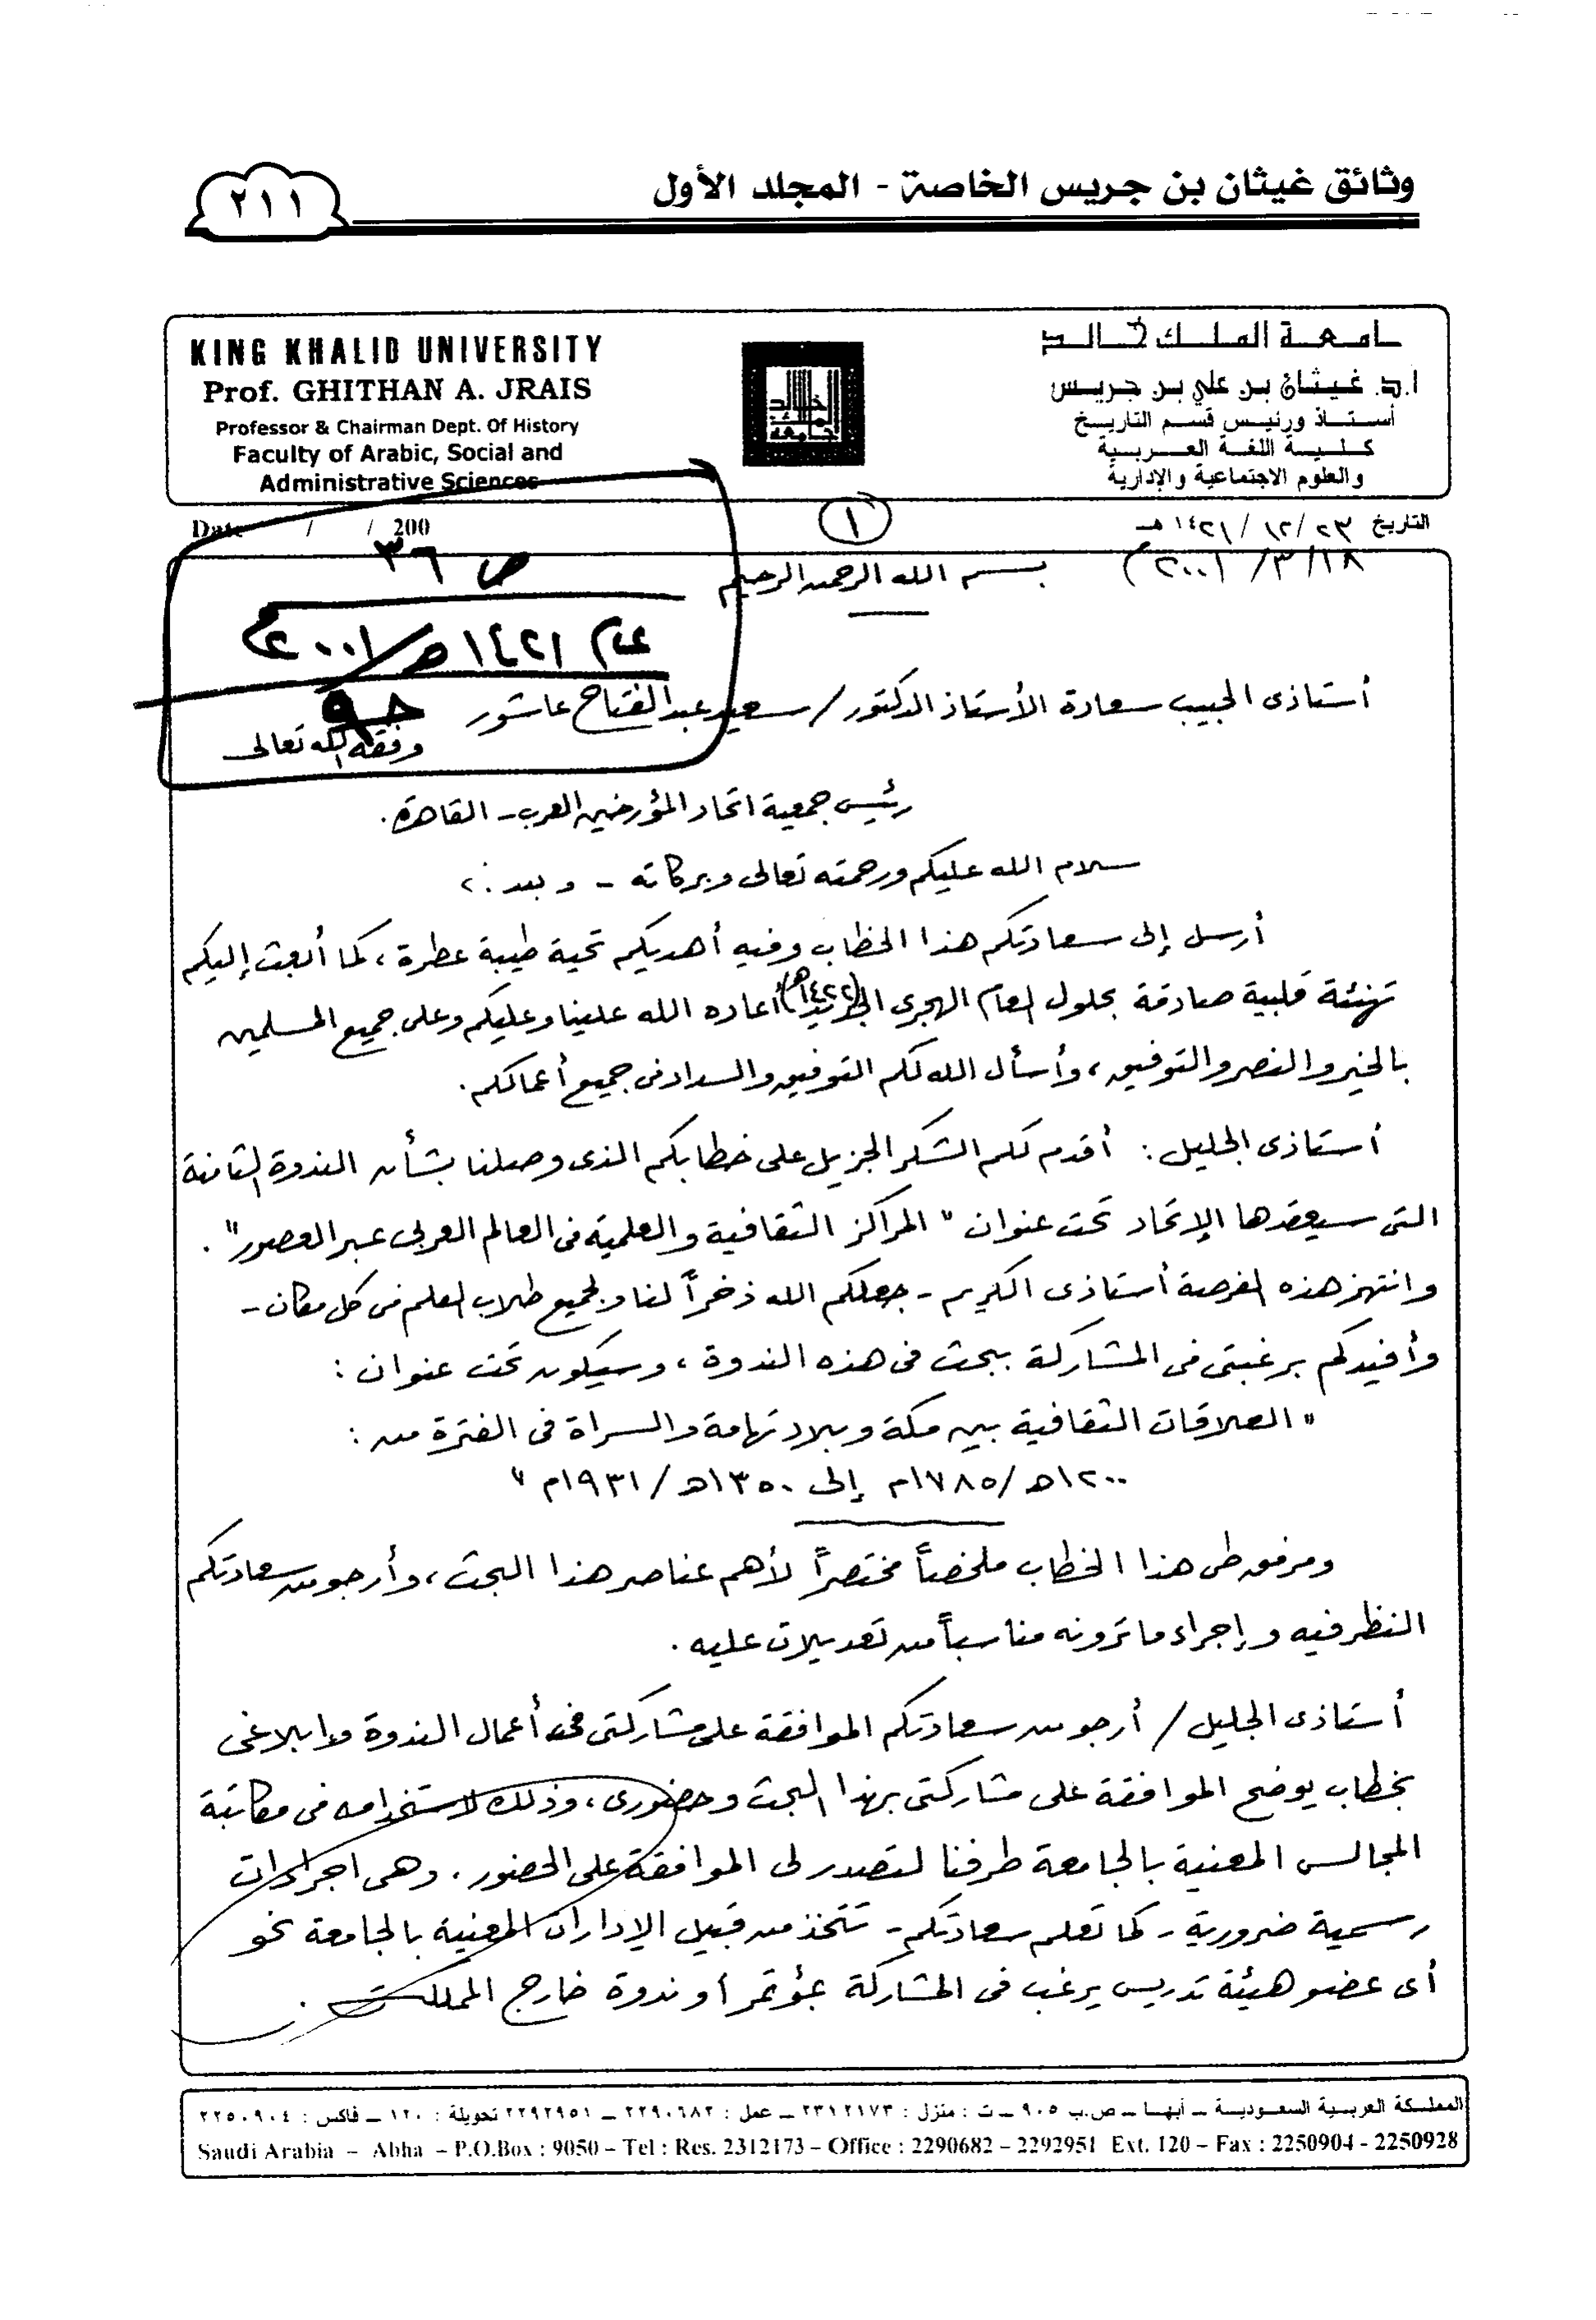 وثائق غيثان بن جريس الخاصة - المجلد الأول
٢١١
KING KHALID UNIVERSITY
Prof. GHITHAN A. JRAIS
Professor & Chairman Dept. Of History
Faculty of Arabic, Social and
Administrative Sciences
جامعة الملك خالد
أ.د. غيثان بن علي بن جريس
أستاذ ورئيس قسم التاريخ
كلية اللغة العربية
والعلوم الاجتماعية والإدارية
Date / / 200
١
التاريخ ٢٣/١٢/١٤٢١هـ
١٨/٣/٢٠٠١م
ص ٣٦
عام ١٤٢١هـ/٢٠٠١م
جـ ٩
بسم الله الرحمن الرحيم
أستاذى الحبيب سعادة الأستاذ الدكتور/ سعيد عبد الفتاح عاشور
وفقه الله تعالى
رئيس جمعية اتحاد المؤرخين العرب - القاهرة.
سلام الله عليكم ورحمته تعالى وبركاته - وبعد :،
أرسل إلى سعادتكم هذا الخطاب وفيه أهديكم تحية طيبة عطرة، كما أبعث إليكم
تهنئة قلبية صادقة بحلول العام الهجرى الجديد (١٤٢٢هـ) أعاده الله علينا وعليكم وعلى جميع المسلمين
بالخير والنصر والتوفيق، وأسأل الله لكم التوفيق والسداد فى جميع أعمالكم.
أستاذى الجليل : أقدم لكم الشكر الجزيل على خطابكم الذى وصلنا بشأن الندوة الثامنة
التى سيعقدها الإتحاد تحت عنوان " المراكز الثقافية والعلمية فى العالم العربى عبر العصور ".
وانتهز هذه الفرصة أستاذى الكريم - جعلكم الله ذخراً لنا ولجميع طلاب العلم فى كل مكان -
وأفيدكم برغبتى فى المشاركة ببحث فى هذه الندوة، وسيكون تحت عنوان :
" العلاقات الثقافية بين مكة وبلاد تهامة والسراة فى الفترة من :
١٢٠٠هـ/١٧٨٥م إلى ١٣٥٠هـ/١٩٣١م "
ومرفق طى هذا الخطاب ملخصاً مختصراً لأهم عناصر هذا البحث، وأرجو من سعادتكم
النظر فيه وإجراء ما ترونه مناسباً من تعديلات عليه.
أستاذى الجليل/ أرجو من سعادتكم الموافقة على مشاركتى فى أعمال الندوة وإبلاغى
بخطاب يوضح الموافقة على مشاركتى بهذا البحث وحضورى، وذلك لاستخدامه فى مكاتبة
المجالس المعنية بالجامعة طرفنا لتصدر لى الموافقة على الحضور. وهى اجراءات
رسمية ضرورية - كما تعلم سعادتكم - تتخذ من قبيل الإدارات المعنية بالجامعة نحو
أى عضو هيئة تدريس يرغب فى المشاركة بمؤتمر أو ندوة خارج المملكة.
المملكة العربية السعودية ــ أبها ــ ص.ب ٩٠٥ ــ ت : منزل : ٢٣١٢١٧٣ ــ عمل : ٢٢٩٠٦٨٢ ــ ٢٢٩٢٩٥١ تحويلة : ١٢٠ ــ فاكس : ٢٢٥٠٩٠٤
Saudi Arabia – Abha – P.O.Box : 9050 – Tel : Res. 2312173 – Office : 2290682 – 2292951 Ext. 120 – Fax : 2250904 - 2250928